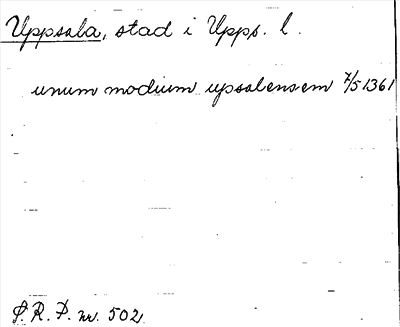 Uppsala, stad i Upps. l.
unum modium upsalensem 7/5 1361
S. R. P. nr. 502